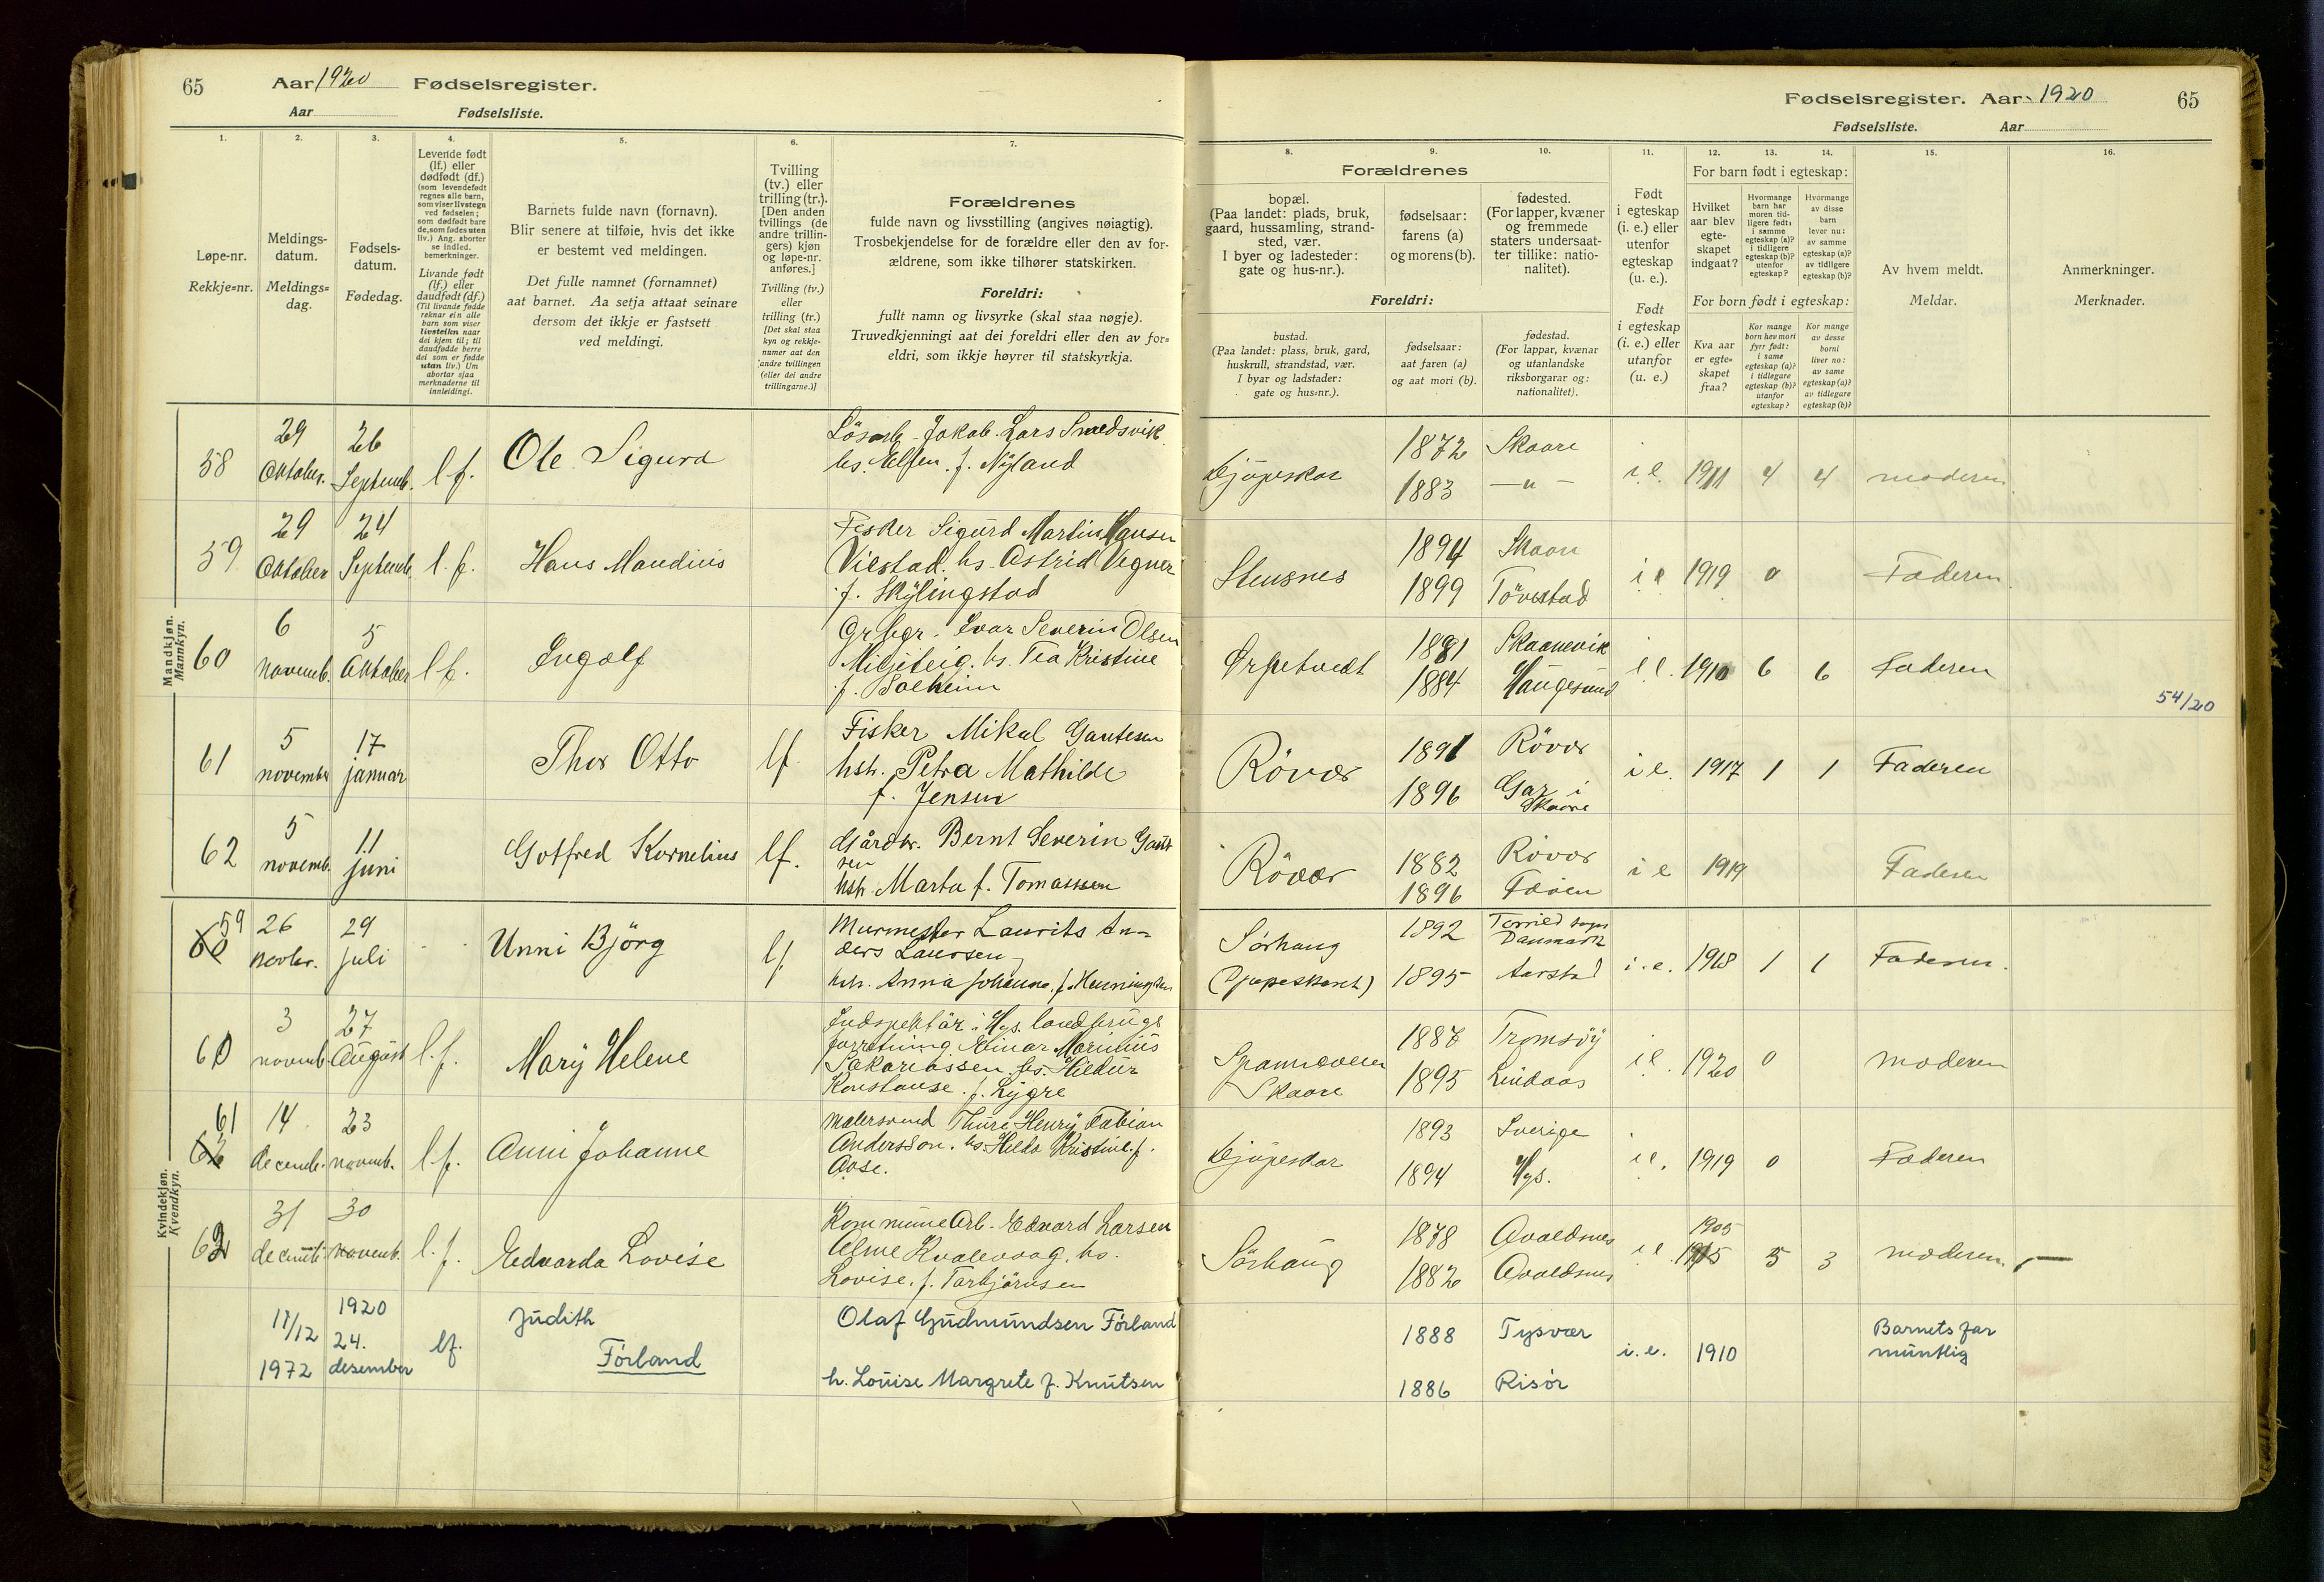 65
Aar 1920 Fødselsregister.
Aar Fødselsliste.
1.
Løpe-nr.
Rekkje=nr.
2.
Meldings-
datum.
Meldings=
dag.
3.
Fødsels-
datum.
Fødedag.
4.
Levende født
(lf.) eller
dødfødt (df.)
(som levendefødt
regnes alle barn,
som viser livstegn
ved fødselen;
som dødfødt bare
de, som fødes uten
liv.) Ang. aborter
se indled.
bemerkninger.
Livande født
(lf.) eller
daudfødt (df.)
(Til livande fødde
reknar ein alle
barn som viser
livsteikn naar
dei kjem til; til
daudfødde berre
dei som er fødde
utan liv.) Um
abortar sjaa
merknaderne til
innleidingi.
5.
Barnets fulde navn (fornavn).
Blir senere at tilføie, hvis det ikke
er bestemt ved meldingen.
Det fulle namnet (fornamnet)
aat barnet. Aa setja attaat seinare
dersom det ikkje er fastsett
ved meldingi.
6.
Tvilling
(tv.) eller
trilling (tr.).
[Den anden
tvillings (de
andre trillin-
gers) kjøn
og løpe-nr.
anføres.]
Tvilling (tv.)
eller
trilling (tr.)
[Det skal staa
kyn og rekkje-
numer aat den
andre tvillingen
(eller dei andre
trillingarne.)]
7.
Forældrenes
fulde navn og livsstilling (angives nøiagtig).
Trosbekjendelse for de forældre eller den av for-
ældrene, som ikke tilhører statskirken.
Foreldri:
fullt namn og livsyrke (skal staa nøgje).
Truvedkjenningi aat dei foreldri eller den av for=
eldri, som ikkje høyrer til statskyrkja.
Mandkjøn.
Mannkyn.
58 29 Oktober. 26 Septemb. l.f. Ole Sigurd
Jakob Lars
hs. f. Nyland
59 29 Oktober 24 Septemb. l.f. Hans Maudius
Fisker Sigurd Martin Hansen
Viestad. hs. Astrid
f. Skylingstad
60 6 novemb. 5 Oktober l.f. Ingolf
Grbgr. Ivar Severin Olsen
hs. Tea Kristine
f. Solheim
61 5 november 17 januar Thor Otto lf.
Fisker Mikal Gautesen
hstr. Petra Mathilde
f. Jensen
62 5 novemb. 11 juni Gotfred Kornelius lf.
Gårdbr. Bernt Severin Gaut
sen
hstr. Marta f. Tomassen
Kvindekjøn.
Kvendkyn.
59 60 26 novbr. 29 juli Unni Björg lf.
Murmester Laurits An=
ders Laursen,
hstr. Anna Johanne f. Henningsen
60 3 novemb. 27 August l.f. Mary Helene
Indspektör i Hgs. landbrugs
forretning Einar Marinius
Sakariassen. hs. Hildur
Konstanse. f. Lygre
61 62 14 decemb. 23 novemb. l.f. Anni Johanne
Malersvend Thure Henry Fabian
Andersson. hs. Hilda Kristine f.
Aase.
62 31 decemb. 30 novemb. l.f. Edvarda Lovise
Kommune Arb. Edvard Larsen
Alme Kvalevaag. hs.
Lovise. f. Torbjörnsen
17/12 1972 1920 24. desember lf. Judith
Förland
Olaf Gudmundsen Förland
h. Louise Margrete f. Knutsen
Fødselsregister. Aar 1920
65
Fødselsliste. Aar
8.
9.
10.
Forældrenes
bopæl.
(Paa landet: plads, bruk,
gaard, hussamling, strand-
sted, vær.
I byer og ladesteder:
gate og hus-nr.).
fødselsaar:
farens (a)
og morens (b).
fødested.
(For lapper, kvæner
og fremmede
staters undersaat-
ter tillike: natio-
nalitet).
Foreldri:
bustad.
(Paa landet: plass, bruk, gard,
huskrull, strandstad, vær.
I byar og ladstader:
gate og hus=nr.).
fødselsaar:
aat faren (a)
og aat mori (b).
fødestad.
(For lappar, kvænar
og utanlandske
riksborgarar og:
nationalitet).
11.
Født
i egteskap
(i. e.) eller
utenfor
egteskap
(u. e.).
Født
i egteskap
(i. e.) eller
utanfor
(u. e.)
12.
13.
14.
For barn født i egteskap:
Hvilket
aar blev
egte-
skapet
indgaat?
Hvormange
barn har
moren tid-
ligere født:
i samme
egteskap (a)?
i tidligere
egteskap (b)?
utenfor
egteskap?
Hvormange
av disse
barn
lever nu:
av samme
egteskap (a)?
av tidligere
egteskap (b)?
For born født i egteskap:
Kva aar
er egte=
skapet
fraa?
Kor mange
born hev mori
fyrr født:
i same
egteskap (a)?
i tidlegare
egteskap (b)?
utanfor
egteskap?
Kor mange
av desse
borni
liver no:
av same
egteskap (a)?
av tidlegare
egteskap (b)?
15.
Av hvem meldt.
Meldar.
16.
Anmerkninger.
Merknader.
Djupeskar 1872 Skaare
1883 —"— i.e. 1911 4 4 moderen
Stensnes 1894 Skaare
1899 Torvestad i.e. 1919 0 Faderen.
1881 Skaanevik
1884 Haugesund i.e. 1910 6 6 Faderen
54/20
Rövær 1891 Rövær
1896 Gar i
Skaare i.e. 1917 1 1 Faderen
Rövær 1882 Rövær
1896 Fæøen i e 1919 Faderen
Sørhaug
(Djupeskaret) 1892 Torrild sogn
Danmark
1895 Aarstad i.e. 1918 1 1 Faderen.
Skaare 1887 Tromsöy
1895 Lindaas i.e. 1920 0 moderen
Djupeskar 1893 Sverige
1894 Hgs. i.e. 1919 0 Faderen
Sörhaug 1878 Avaldsnes
1882 Avaldsnes i.e. 1905 5 3 moderen.
1888 Tysvær
1886 Risör i.e. 1910 Barnets far
muntlig